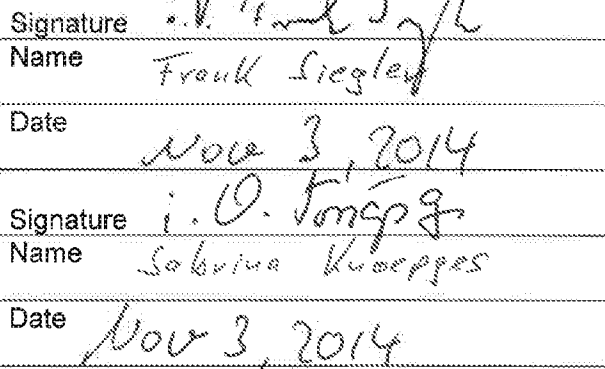 Signature i.V.
Name Frank Siegler
Date Nov 3, 2014
Signature i.V.
Name Sabrina Knoepges
Date Nov 3, 2014